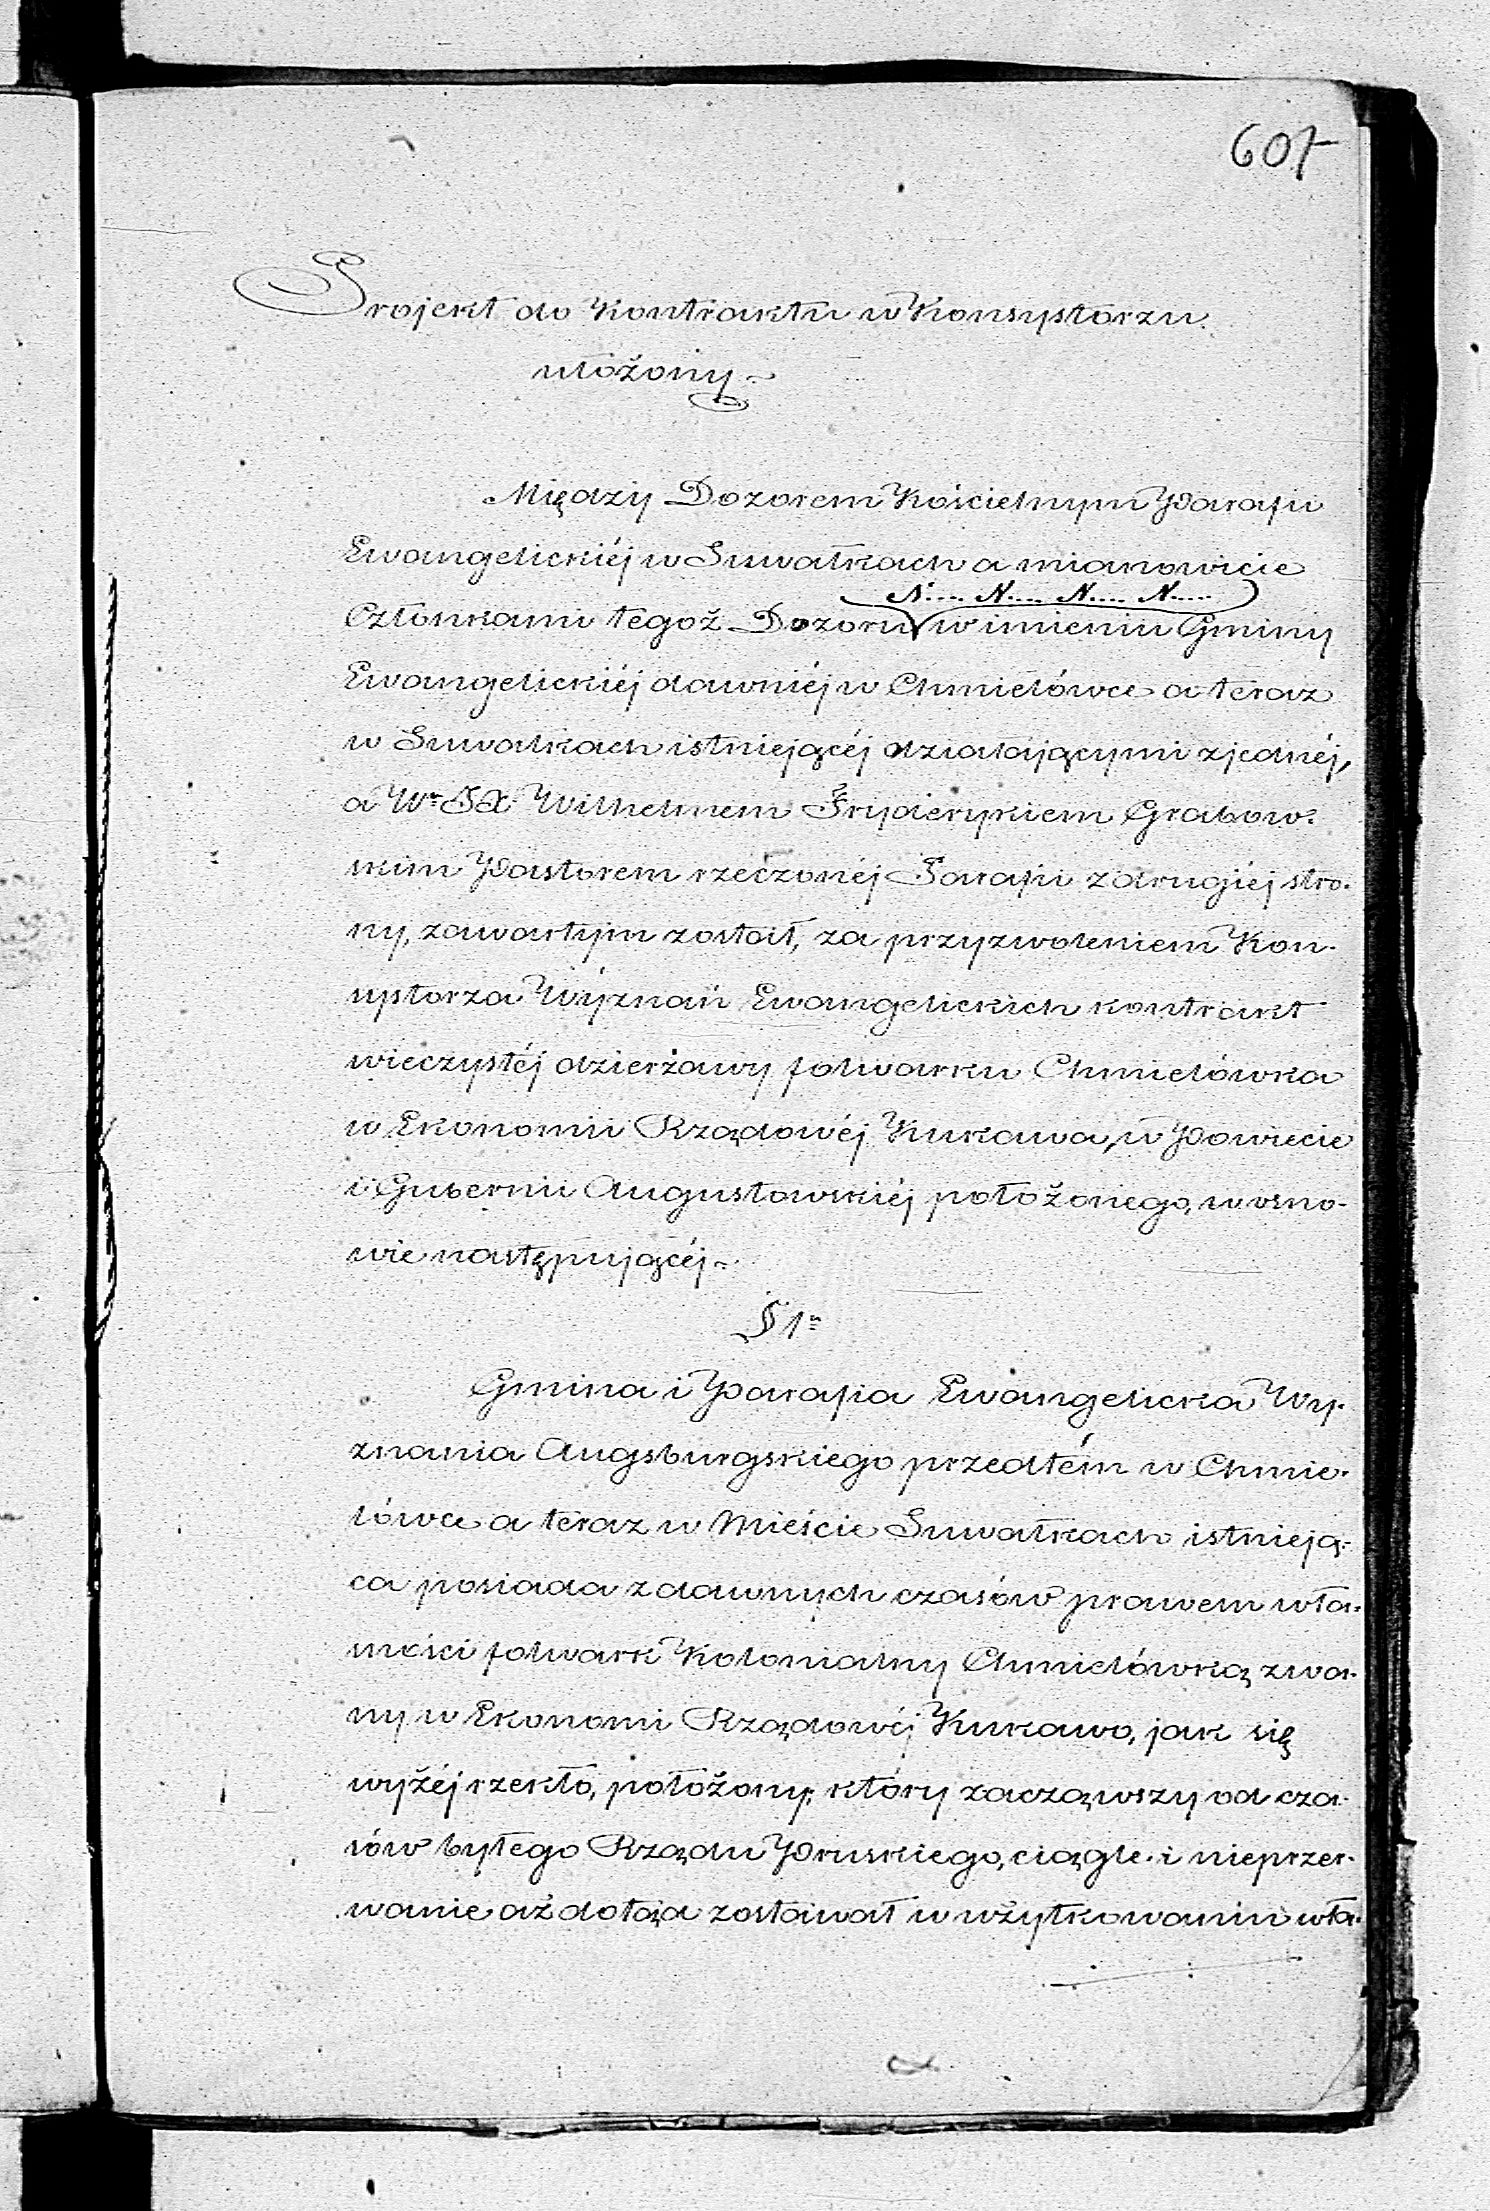 607
Projekt do Kontraktu w Konsystorzu
ułożony
Między Dozorem Kościelnym Parafii
Ewangelickiéj w Suwałkach a mianowicie
N.... N.... N.... N....
Członkami tegoż Dozoru w imieniu Gminy
Ewangelickiéj dawniéj w Chmielówce a teraz
w Suwałkach istniejącéj działającymi z jednéj,
a Wm JX Wilhelmem Fryderykiem Grabow-
skim Pastorem rzeczonéj Parafii z drugiéj stro-
ny, zawartym został, za przyzwoleniem Kon-
systorza Wyznań Ewangelickich kontrakt
wieczystéj dzierżawy folwarku Chmielówka
w Ekonomii Rządowéj Kukawa, w Powiecie
i Gubernii Augustowskiéj położonego, w osno-
wie następującéj
§ 1
Gmina i Parafia Ewangelicka Wy-
znania Augsburgskiego przedtém w Chmie-
lówce a teraz w Mieście Suwałkach istnieją-
ca posiada z dawnych czasów prawem wła-
sności folwark Kolonialny Chmielówką zwa-
ny w Ekonomi Rządowéj Kukawo, jak się
wyżéj rzekło, położony, który zacząwszy od cza-
sów byłego Rządu Pruskiego, ciągle i nieprzer-
wanie aż dotąd zostawał w użytkowaniu wła-